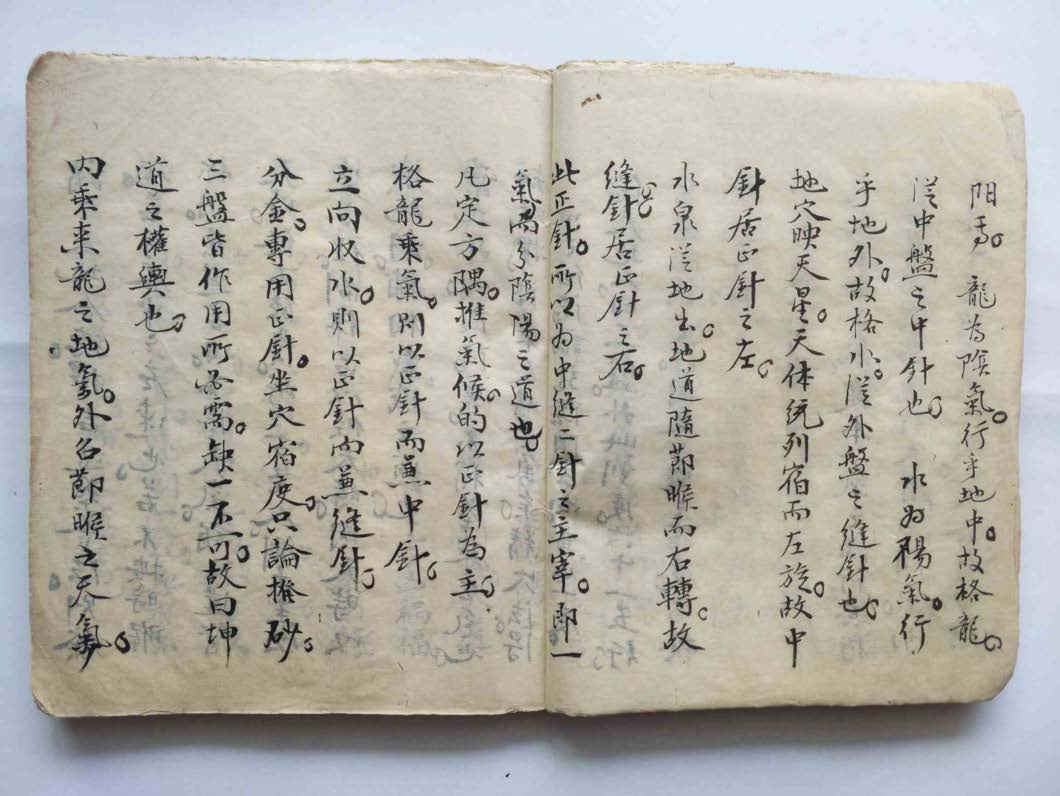 阳also。龍為陰氣。行乎地中。故格龍。
從中盤之中針也。水为陽氣。行
乎地外。故格水。從外盤之缝針也。
地穴映天星。天体統列宿而左旋。故中
針居正針之左。
水泉從地出。地道隨節候而右轉。故
缝針居正針之右。
此正針。所以为中缝二針之主宰。即一
氣而分陰陽之道也。
凡定方隅。推氣候。的以正針為主。
格龍乘氣。則以正針而兼中針。
立向収水。則以正針而兼缝針。
分金專用正針。坐穴宿度。只論撥砂。
三盤皆作用所必需。缺一不可。故曰坤
道之權輿也。
内乘来龍之地氣。外占節候之天氣。